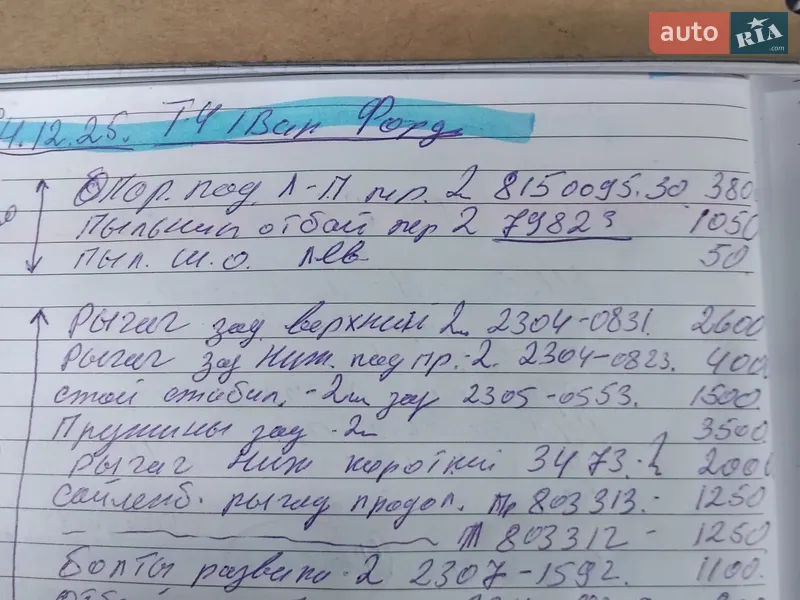 auto RIA .com
4.12.25. Т.Ч Іван Форд
Опор. под Л-П пер. 2 8150095.30 380
Пыльник отбой пер 2 79823 1050
Пыл. ш.о. лев 50
Рычаг зад верхний 2шт 2304-0831. 2600
Рычаг зад Ниж. под пр.-2. 2304-0823. 400
стой стабил. -2шт зад 2305-0553. 1500
Пружины зад -2шт 3500
Рычаг Ниж короткий 3473.-2 2000
Сайленб. рычаг продол. Пр 803313.- 1250
Л 803312 - 1250
Болты развала -2 2307-1592. 1100.